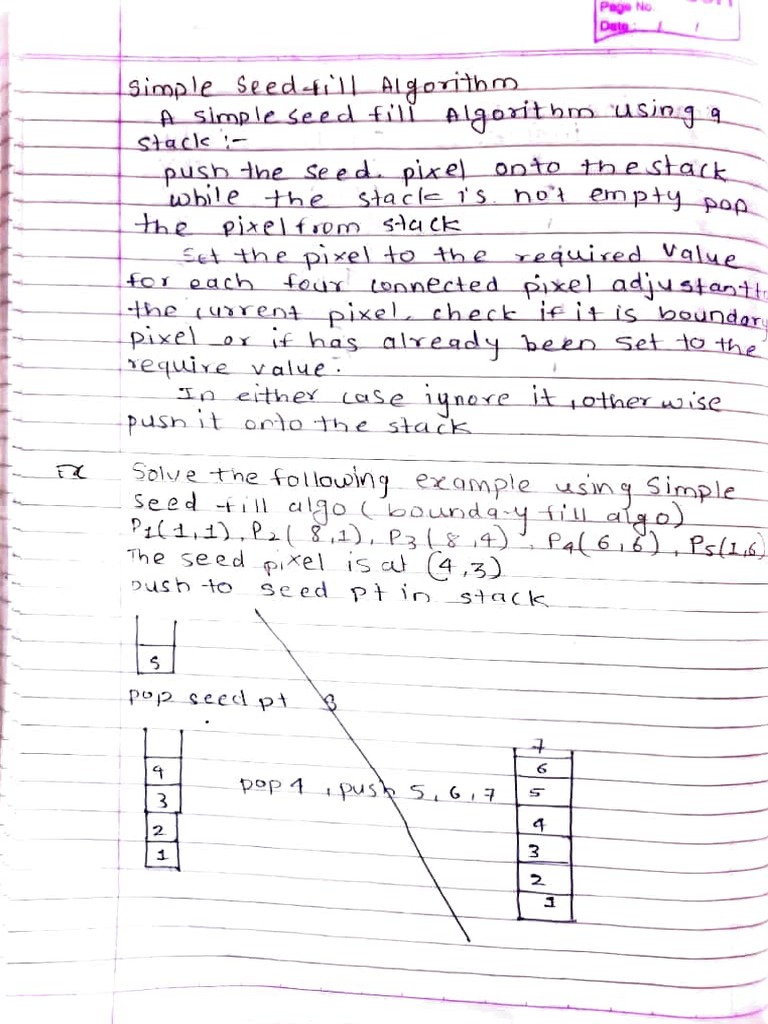 Page No.
Date: / /
Simple Seed-fill Algorithm
A simple seed fill Algorithm using a
stack :-
push the seed. pixel onto the stack
while the stack is not empty pop
the pixel from stack
Set the pixel to the required value
for each four connected pixel adjustant to
the current pixel, check if it is boundary
pixel or if has already been set to the
require value.
In either case ignore it, otherwise
push it onto the stack
EX Solve the following example using Simple
seed fill algo (boundary fill algo)
P1(1,1), P2(8,1), P3(8,4), P4(6,6), P5(1,6)
The seed pixel is at (4,3)
push to seed pt in stack
S
pop seed pt
4
3
2
1
pop 4, push 5, 6, 7
7
6
5
4
3
2
1